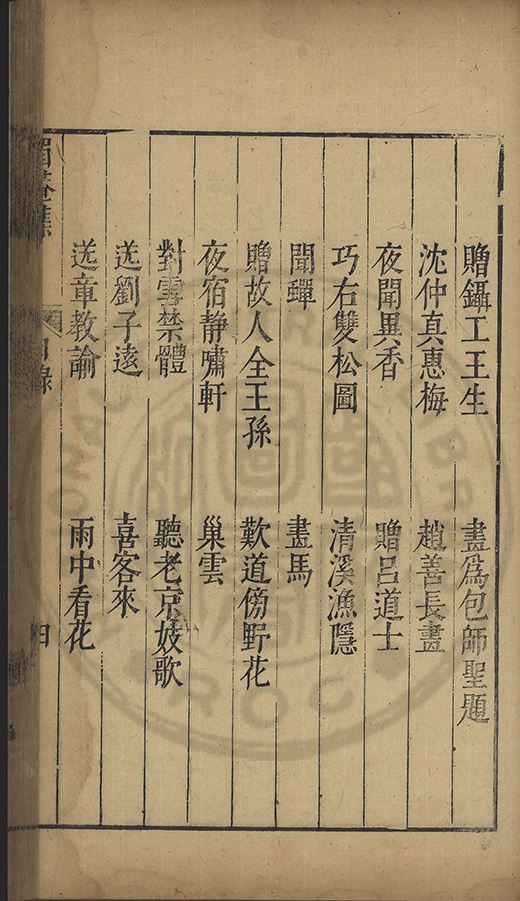 贈鑷工王生　畫為包師聖題
沈仲真惠梅　趙善長畫
夜聞異香　贈呂道士
巧右雙松圖　清溪漁隱
聞蟬　畫馬
贈故人全王孫　歎道傍野花
夜宿静嘯軒　巢雲
對雪禁體　聽老京妓歌
送劉子遠　喜客來
送章教諭　雨中看花
目錄　四